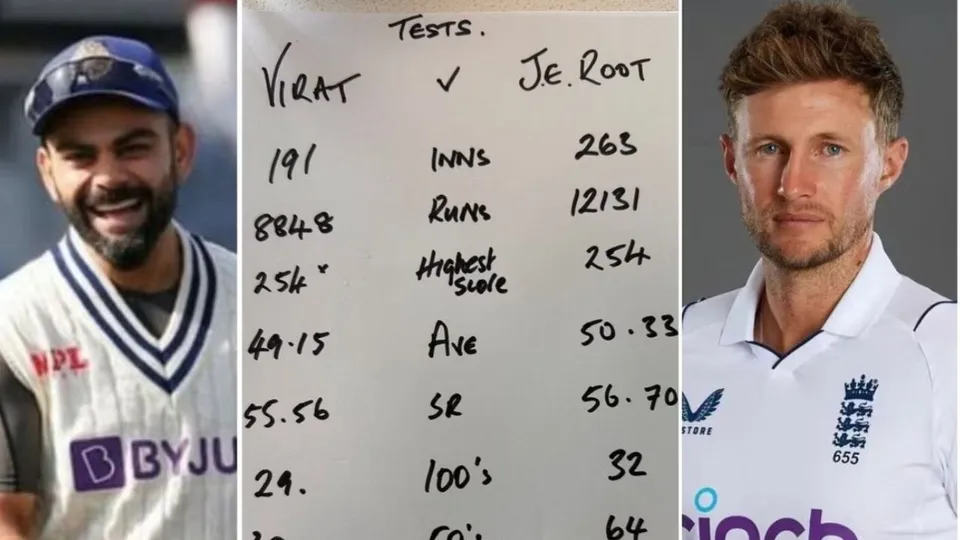 TESTS.
VIRAT v J.E. ROOT
191 INNS 263
8848 RUNS 12131
254* Highest
score 254
49.15 AVE 50.33
55.56 SR 56.70
29. 100's 32
50's 64
MPL
BYJU
STORE
655
cinch